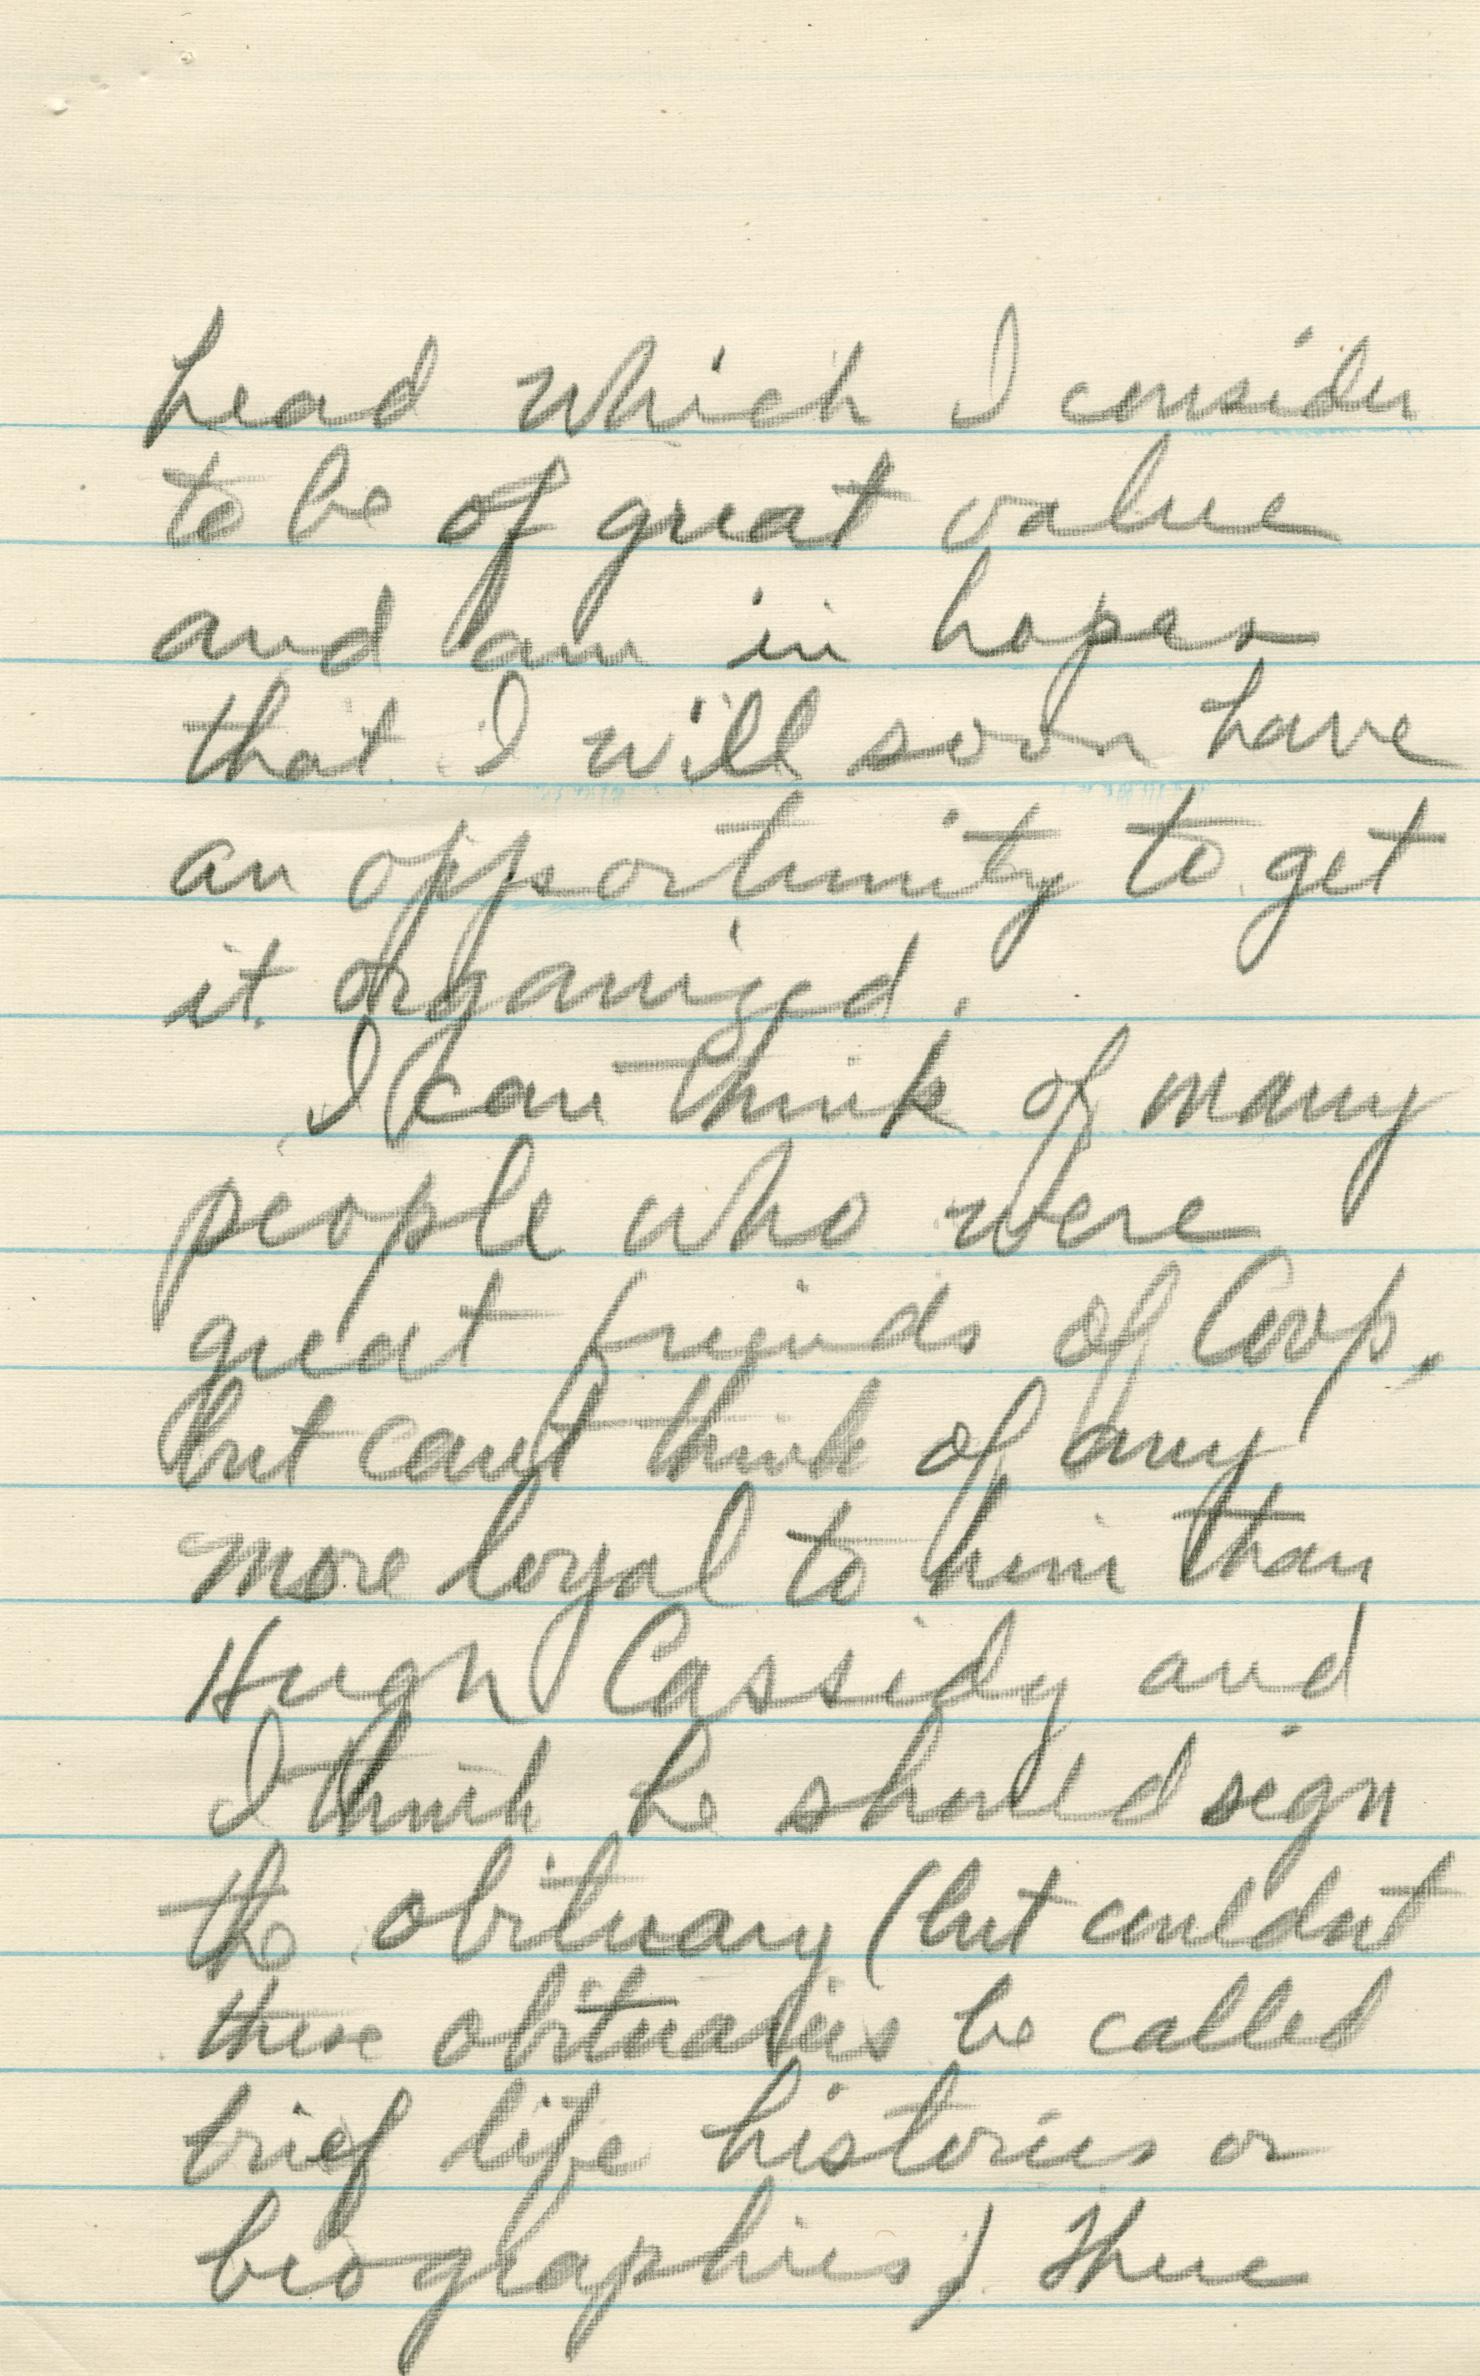 head which I consider
to be of great value
and am in hopes
that I will soon have
an opportunity to get
it organized.
I can think of many
people who were
great friends of Coop,
but can't think of any
more loyal to him than
Hugh Cassidy and
I think he should sign
the obituary (but couldnt
these obituaries be called
brief life histories or
biographies). There